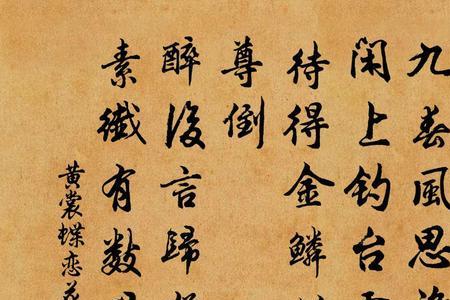 九春風思
閑上钓台
待得金鳞
尊倒
醉後言歸
素纖有數
黄裳蝶恋花